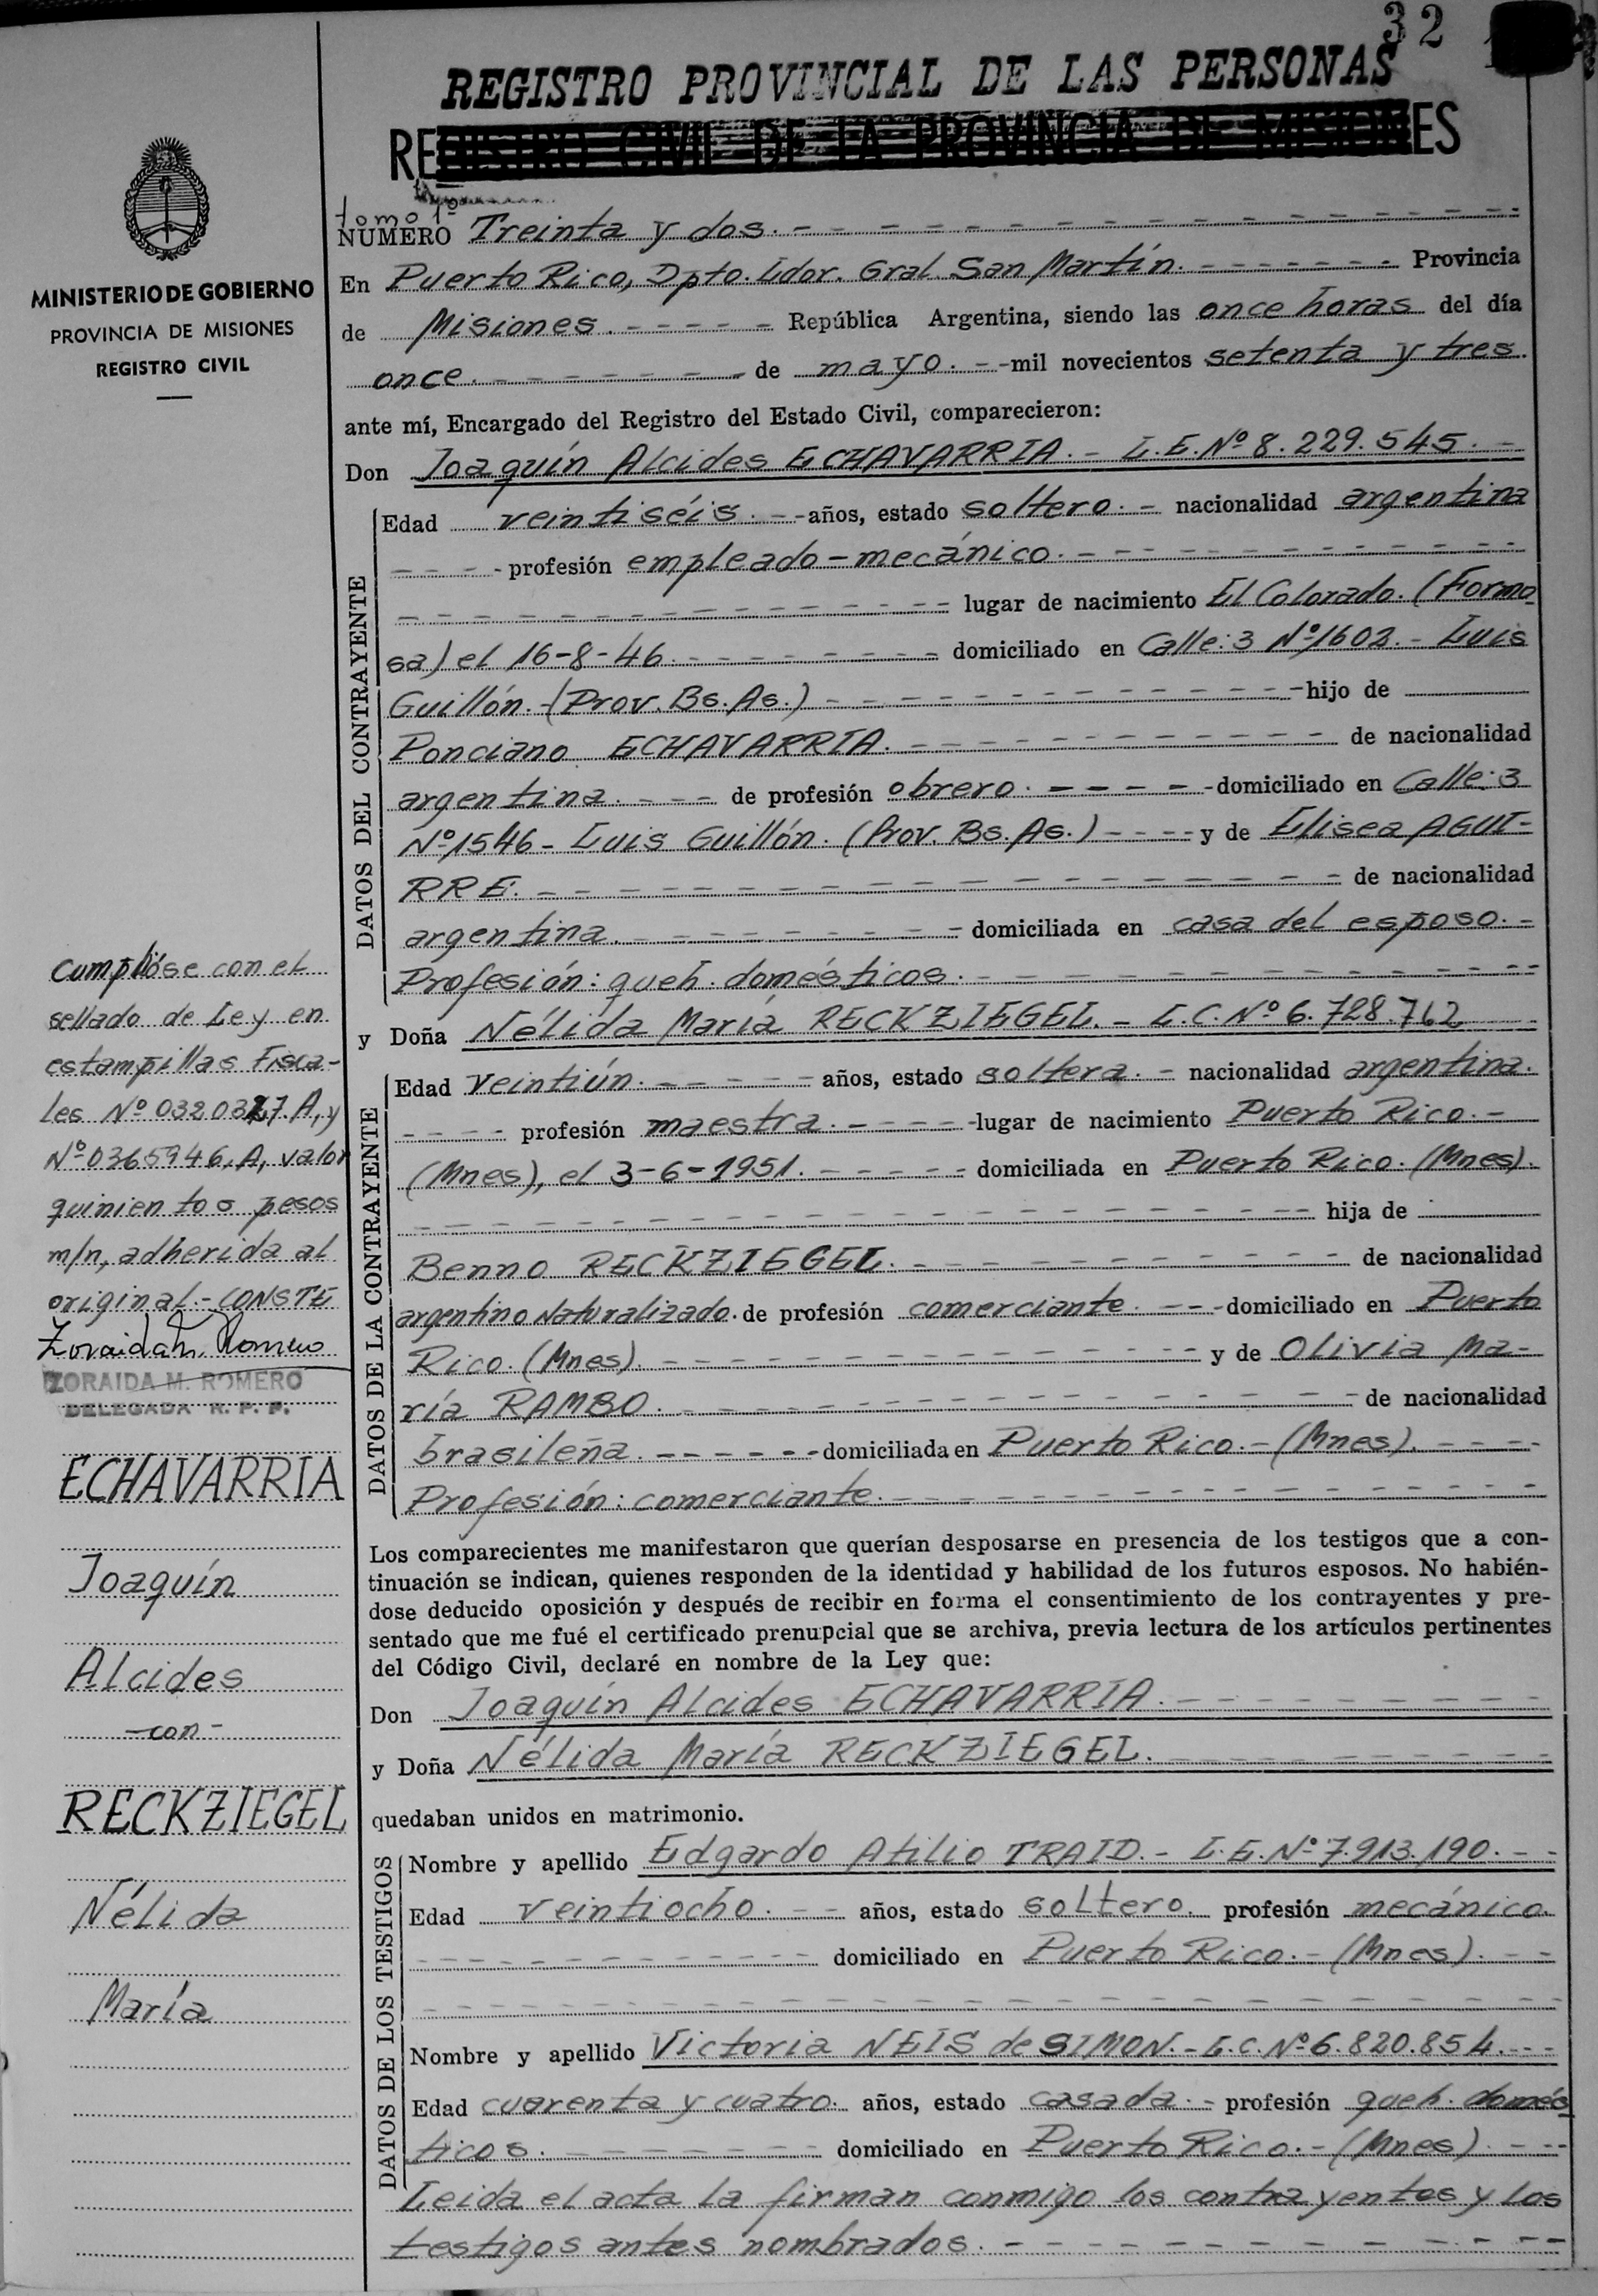 32
REGISTRO PROVINCIAL DE LAS PERSONAS
REGISTRO CIVIL DE LA PROVINCIA DE MISIONES
MINISTERIO DE GOBIERNO
PROVINCIA DE MISIONES
REGISTRO CIVIL
tomo 1º
NUMERO Treinta y dos.
En Puerto Rico, Dpto. Ldor. Gral. San Martín. Provincia
de Misiones. República Argentina, siendo las once horas del día
once. de mayo. mil novecientos setenta y tres.
ante mí, Encargado del Registro del Estado Civil, comparecieron:
Don Joaquín Alcides ECHAVARRIA.- L.E.Nº 8.229.545.-
DATOS DEL CONTRAYENTE
Edad veintiséis. años, estado soltero.- nacionalidad argentina
profesión empleado-mecánico.
lugar de nacimiento El Colorado. (Formo
sa) el 16-8-46. domiciliado en Calle: 3 Nº1602.- Luis
Guillón.-(Prov. Bs. As.) hijo de
Ponciano ECHAVARRIA. de nacionalidad
argentina. de profesión obrero. domiciliado en Calle: 3
Nº1546- Luis Guillón. (Prov. Bs. As.) y de Elisea AGUI-
RRE. de nacionalidad
argentina. domiciliada en casa del esposo.-
Profesión: queh. domésticos.
y Doña Nélida María RECKZIEGEL.- L.C.Nº 6.728.762
DATOS DE LA CONTRAYENTE
Edad Veintiún. años, estado soltera.- nacionalidad argentina.
profesión maestra. lugar de nacimiento Puerto Rico.-
(Mnes), el 3-6-1951. domiciliada en Puerto Rico. (Mnes).
hija de
Benno RECKZIEGEL. de nacionalidad
argentino Naturalizado. de profesión comerciante. domiciliado en Puerto
Rico. (Mnes). y de Olivia Ma-
ría RAMBO. de nacionalidad
brasileña. domiciliada en Puerto Rico.-(Mnes).
Profesión: comerciante.
Los comparecientes me manifestaron que querían desposarse en presencia de los testigos que a con-
tinuación se indican, quienes responden de la identidad y habilidad de los futuros esposos. No habién-
dose deducido oposición y después de recibir en forma el consentimiento de los contrayentes y pre-
sentado que me fué el certificado prenupcial que se archiva, previa lectura de los artículos pertinentes
del Código Civil, declaré en nombre de la Ley que:
Don Joaquín Alcides ECHAVARRIA.
y Doña Nélida María RECKZIEGEL.
quedaban unidos en matrimonio.
DATOS DE LOS TESTIGOS
Nombre y apellido Edgardo Atilio TRAID.- L.E.Nº 7.913.190.
Edad veintiocho. años, estado soltero. profesión mecánico.
domiciliado en Puerto Rico.-(Mnes).
Nombre y apellido Victoria NEIS de SIMON.-L.C.Nº 6.820.854.
Edad cuarenta y cuatro. años, estado casada.- profesión queh. domés
ticos. domiciliado en Puerto Rico.-(Mnes).
Leida el acta la firman conmigo los contrayentes y los
testigos antes nombrados.
Cumplióse con el
sellado de Ley en
estampillas Fisca-
les Nº A, y
Nº 0365946.A, valor
quinientos pesos
m/n, adherida al
original.-CONSTE
Zoraida M. Romero
ZORAIDA M. ROMERO
DELEGADA R. P. P.
ECHAVARRIA
Joaquín
Alcides
-con-
RECKZIEGEL
Nélida
María